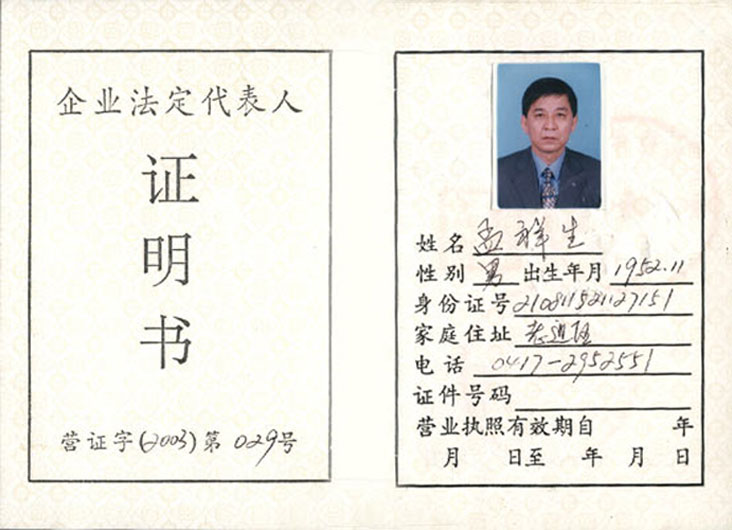 企业法定代表人
证
明
书
营证字(2003)第029号
姓名 孟祥生
性别 男 出生年月 1952.11
身份证号 210811521127151
家庭住址
电话 0417-2952551
证件号码
营业执照有效期自 年
月 日至 年 月 日